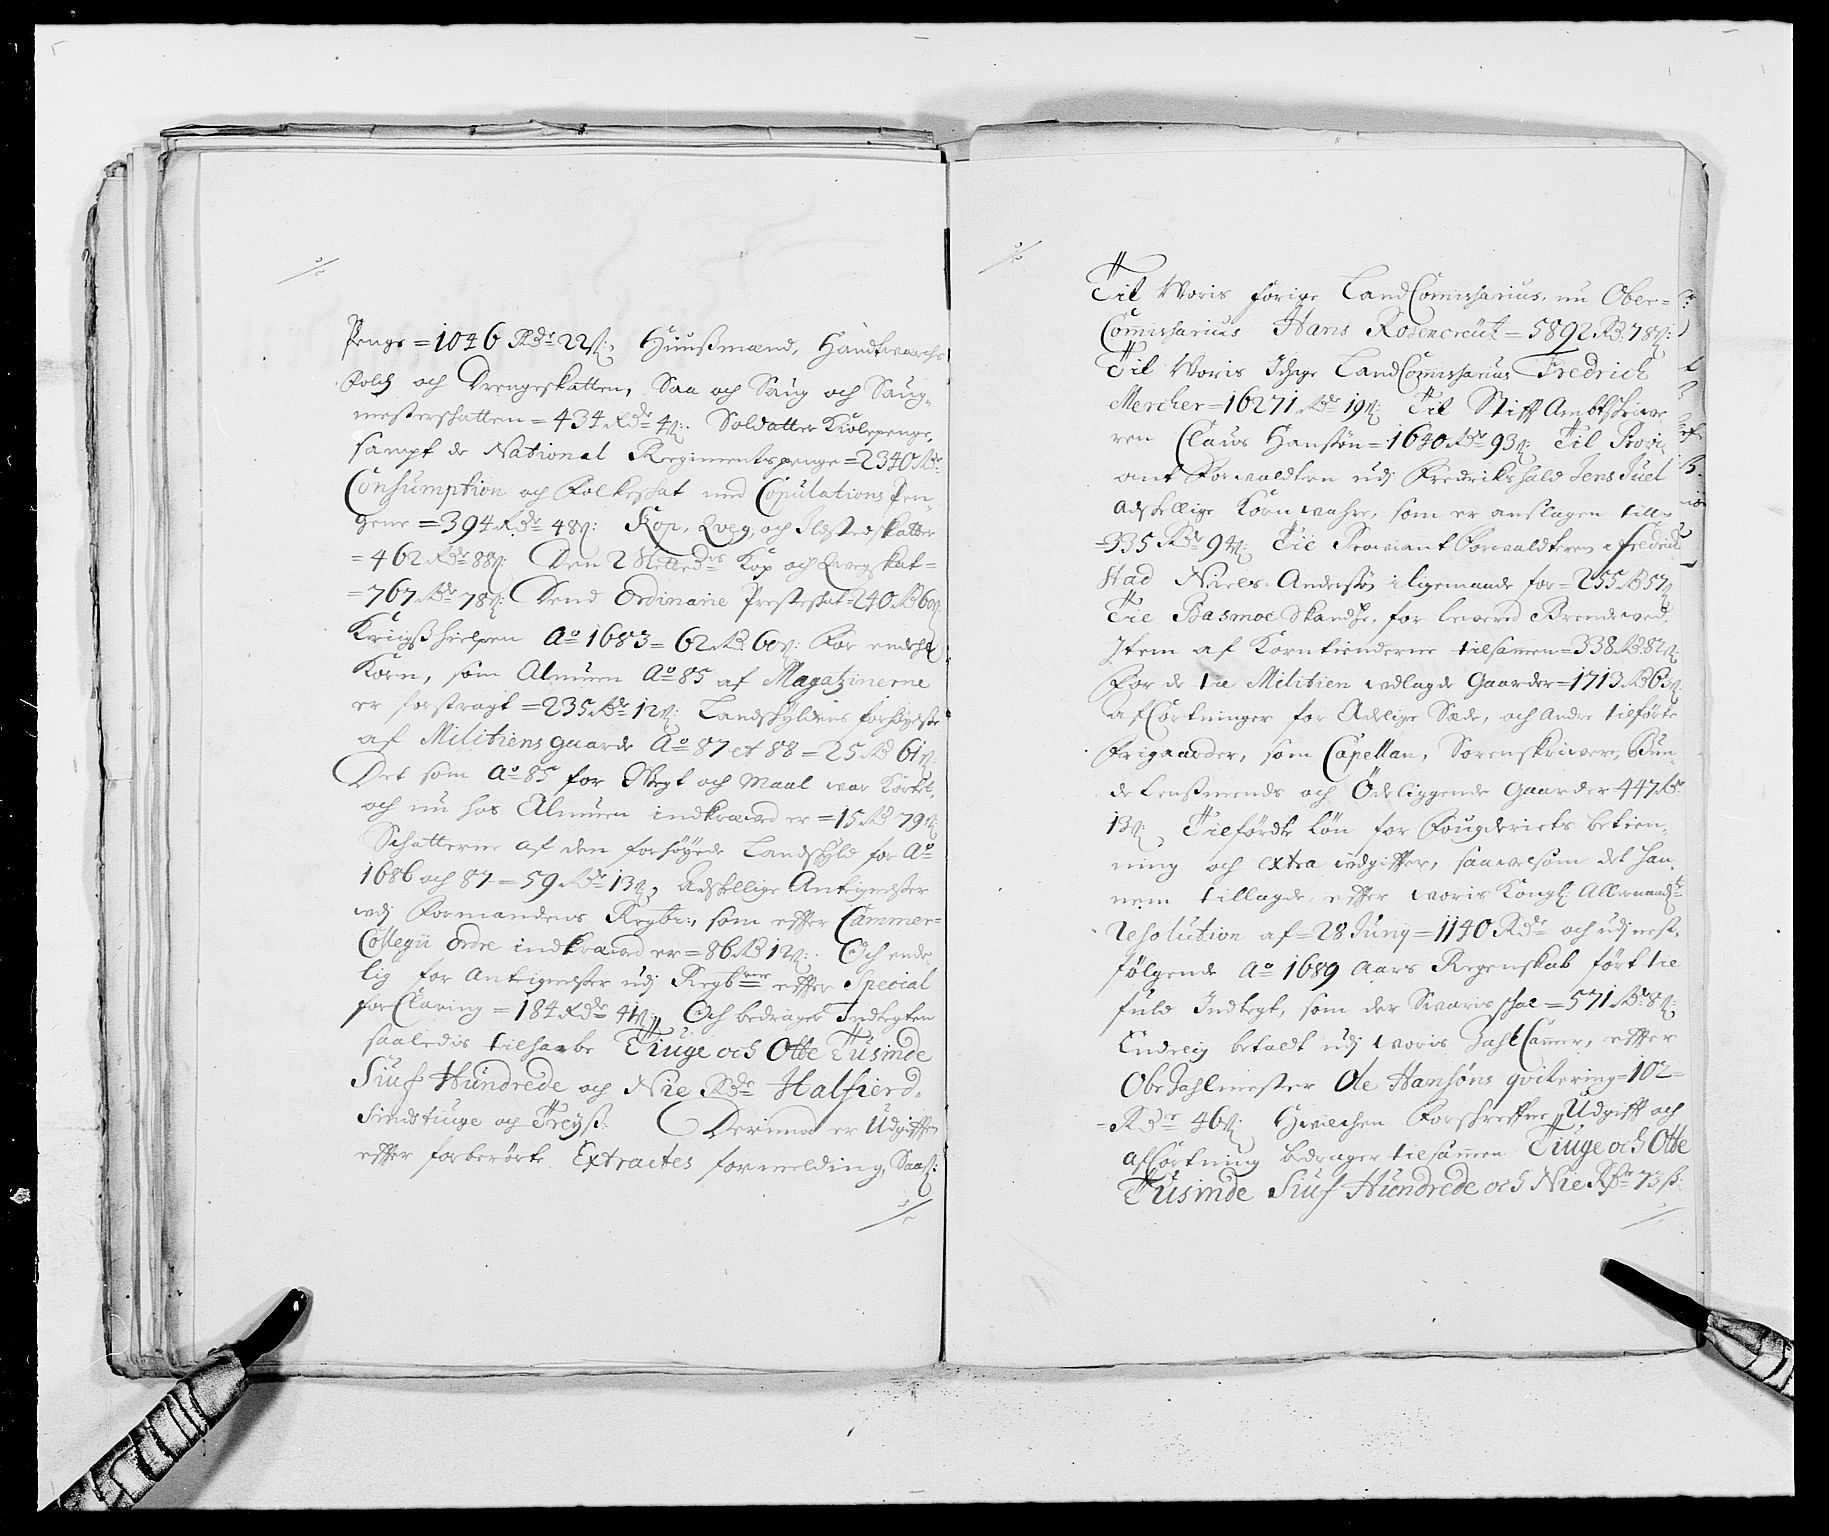 Penge =1046 Rdr 22ß: Huußmænd, Handtwærchs
Folch och Drengeskatten, Saa och Saug och Saug-
mesterskatten =434 Rdr 4ß: Soldatter Kiolepenge,
sampt de National Regimentspenge =2340 Rdr
Consumption och Folkeskat med Copulations Pen-
gene =394 Rdr 48ß: Kop, Qveg, och Ildstedskatter
=462 Rdr 88ß: Den 2 Kop och Qvegskat=
=767 Rdr 78ß: Dend Ordinarie Presteskat =240 Rd 60ß
Krigßhielpen Ao 1683 = 62 Rd 60ß: For
Korn, som Almuen Ao 85 af Magatzinerne
er forstragt =235 Rdr 12ß: Landskyldens forhøyelse
af Militiens gaarde Ao 87 et 88 = 25 Rd 61ß:
Det som Ao 85 for Wegt och Maal war Kortet,
och nu hos Almuen indkræved er =15 Rd 79ß
Schatterne af den forhøyede Landskyld for Ao
1686 och 87 = 59 Rdr 13ß, Adskellige Antegnelser
udj Formandens Regbr:, som effter Cammer-
Collegii Ordre indkræved er =86 Rd 12ß: Och ende-
lig for Antegnelser udj Regb effter Special
forClaring =184 Rdr 41ß, Och bedrager Indtegten
saaledis tilsambe Tiuge och Otte Tusinde
Siuf Hundrede och Nie Rdr Halfierd-
sindstiuge och Treyß: Derimod er Udgifften
effter forberørte Extractes formelding, Saaß:
Til Woris forige LandComissarius, nu Ober-
Comissarius Hans Rosencreut =5892 Rd: 78ß:
Til Woris Ichige LandComissarius Fredrich
Mercher =16271 Rdr 19ß: Til Stifft Ambtskriwe
ren Claus Hansøn =1640 Rdr 93ß: Til Provi-
ant Forwaldteren udj Fredrikshald Jens Juel
Adskellige Kornwahre, som er anslagen till=
=335 Rdr 94ß: Til Proviant Forwaldteren i Fredrik
stad Niels Andersøn i ligemaade for =255 Rd 57ß
Til Basmoe Skandße, for lewered Brendewed,
Item af Korntienderne tilsamen =338 Rd: 82ß:
For de til Militien udlagde Gaarder =1713 Rd 63ß:
afCortninger for Adelige Sæde, och Andre tilførte
Frigaarder, som Capellan, Sorenskriwer, Bun-
de Lenßmends och Ødeliggende Gaarder 447 Rdr
13ß: Tilførdte Løn for Fougderiets betien-
ning och extra udgiffter, saawelsom det han-
nem tillagde, effter Woris Kongl: Allernaadste
Resolution af =28 Juny =1140 Rdr och udj nest-
følgende Ao 1689 Aars Regenskab ført til
fuld Indtegt, som der Swaris skal =571 Rdr 8ß:
Endelig betaldt udj Woris ZahlCamer, effter
OberZahlmester Ole Hansøns qvitering =102=
=Rdr 46ß: Hwilchen Forschreffne Udgifft och
afCortning bedrager tilsammen Tiuge och Otte
Tusinde Siuf Hundrede och Nie Rdr 73ß: